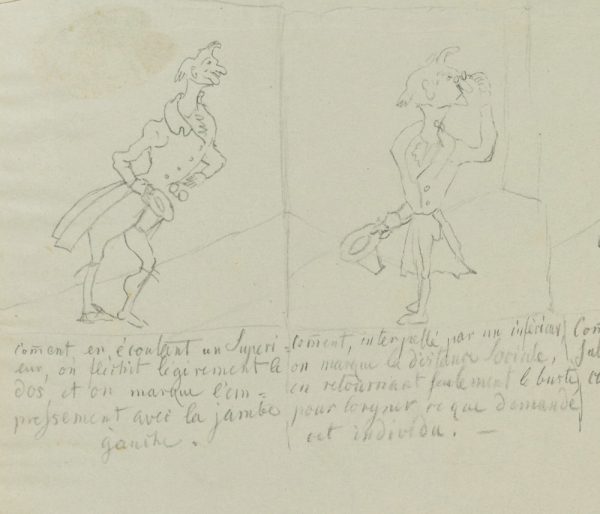 Com̄ent en écoutant un Supéri=
eur, on fléchit légèrement le
dos, et on marque l'em=
pressement avec la jambe
gauche.
Com̄ent, interpellé par un inférieur,
on marque la distance Sociale,
en retournant seulement le buste,
pour lorgner ce que demande
cet individu. —
Com